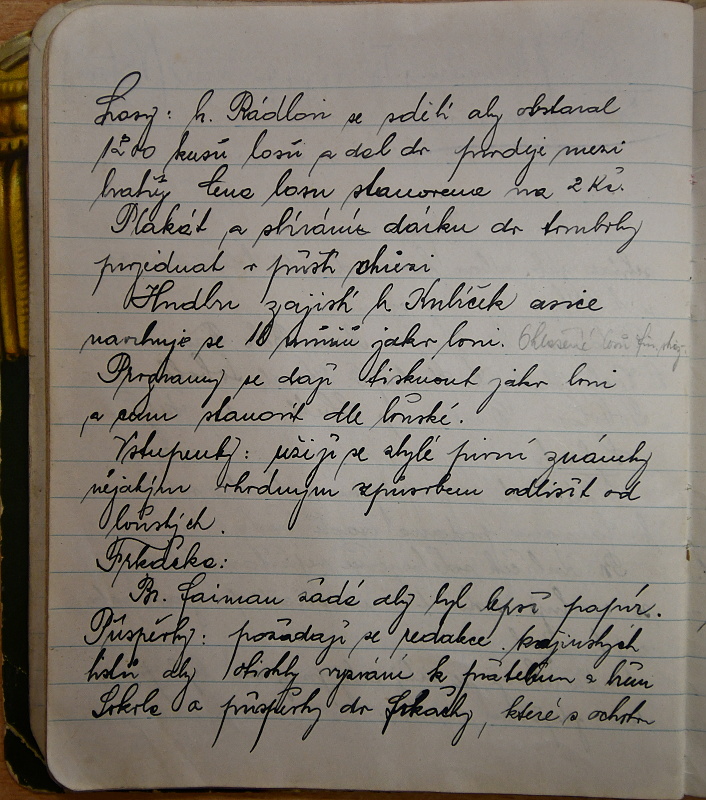 Losy: br. Rádlovi se sdělí aby obstaral
1200 kusů losů a dal do prodeje mezi
bratry Cena losu stanovena na 2 Kč.
Plakát a sbírání dárku do tomboly
projednat v příští schůzi
Hudbu zajistí br. Kubíček asice
navrhuje se 10 mužů jako loni.
Programy se dají tisknout jako loni
a cenu stanovit dle loňské.
Vstupenky: užijí se zbylé pivní známky
nějakým vhodným způsobem odlišit od
loňských.
Frkačka:
Br. Laiman žádá aby byl lepší papír.
Příspěvky: požádají se redakce krajinských
listů aby otiskly vyzvání k přátelům a
Sokola o příspěvky do Frkačky, které s ochotou